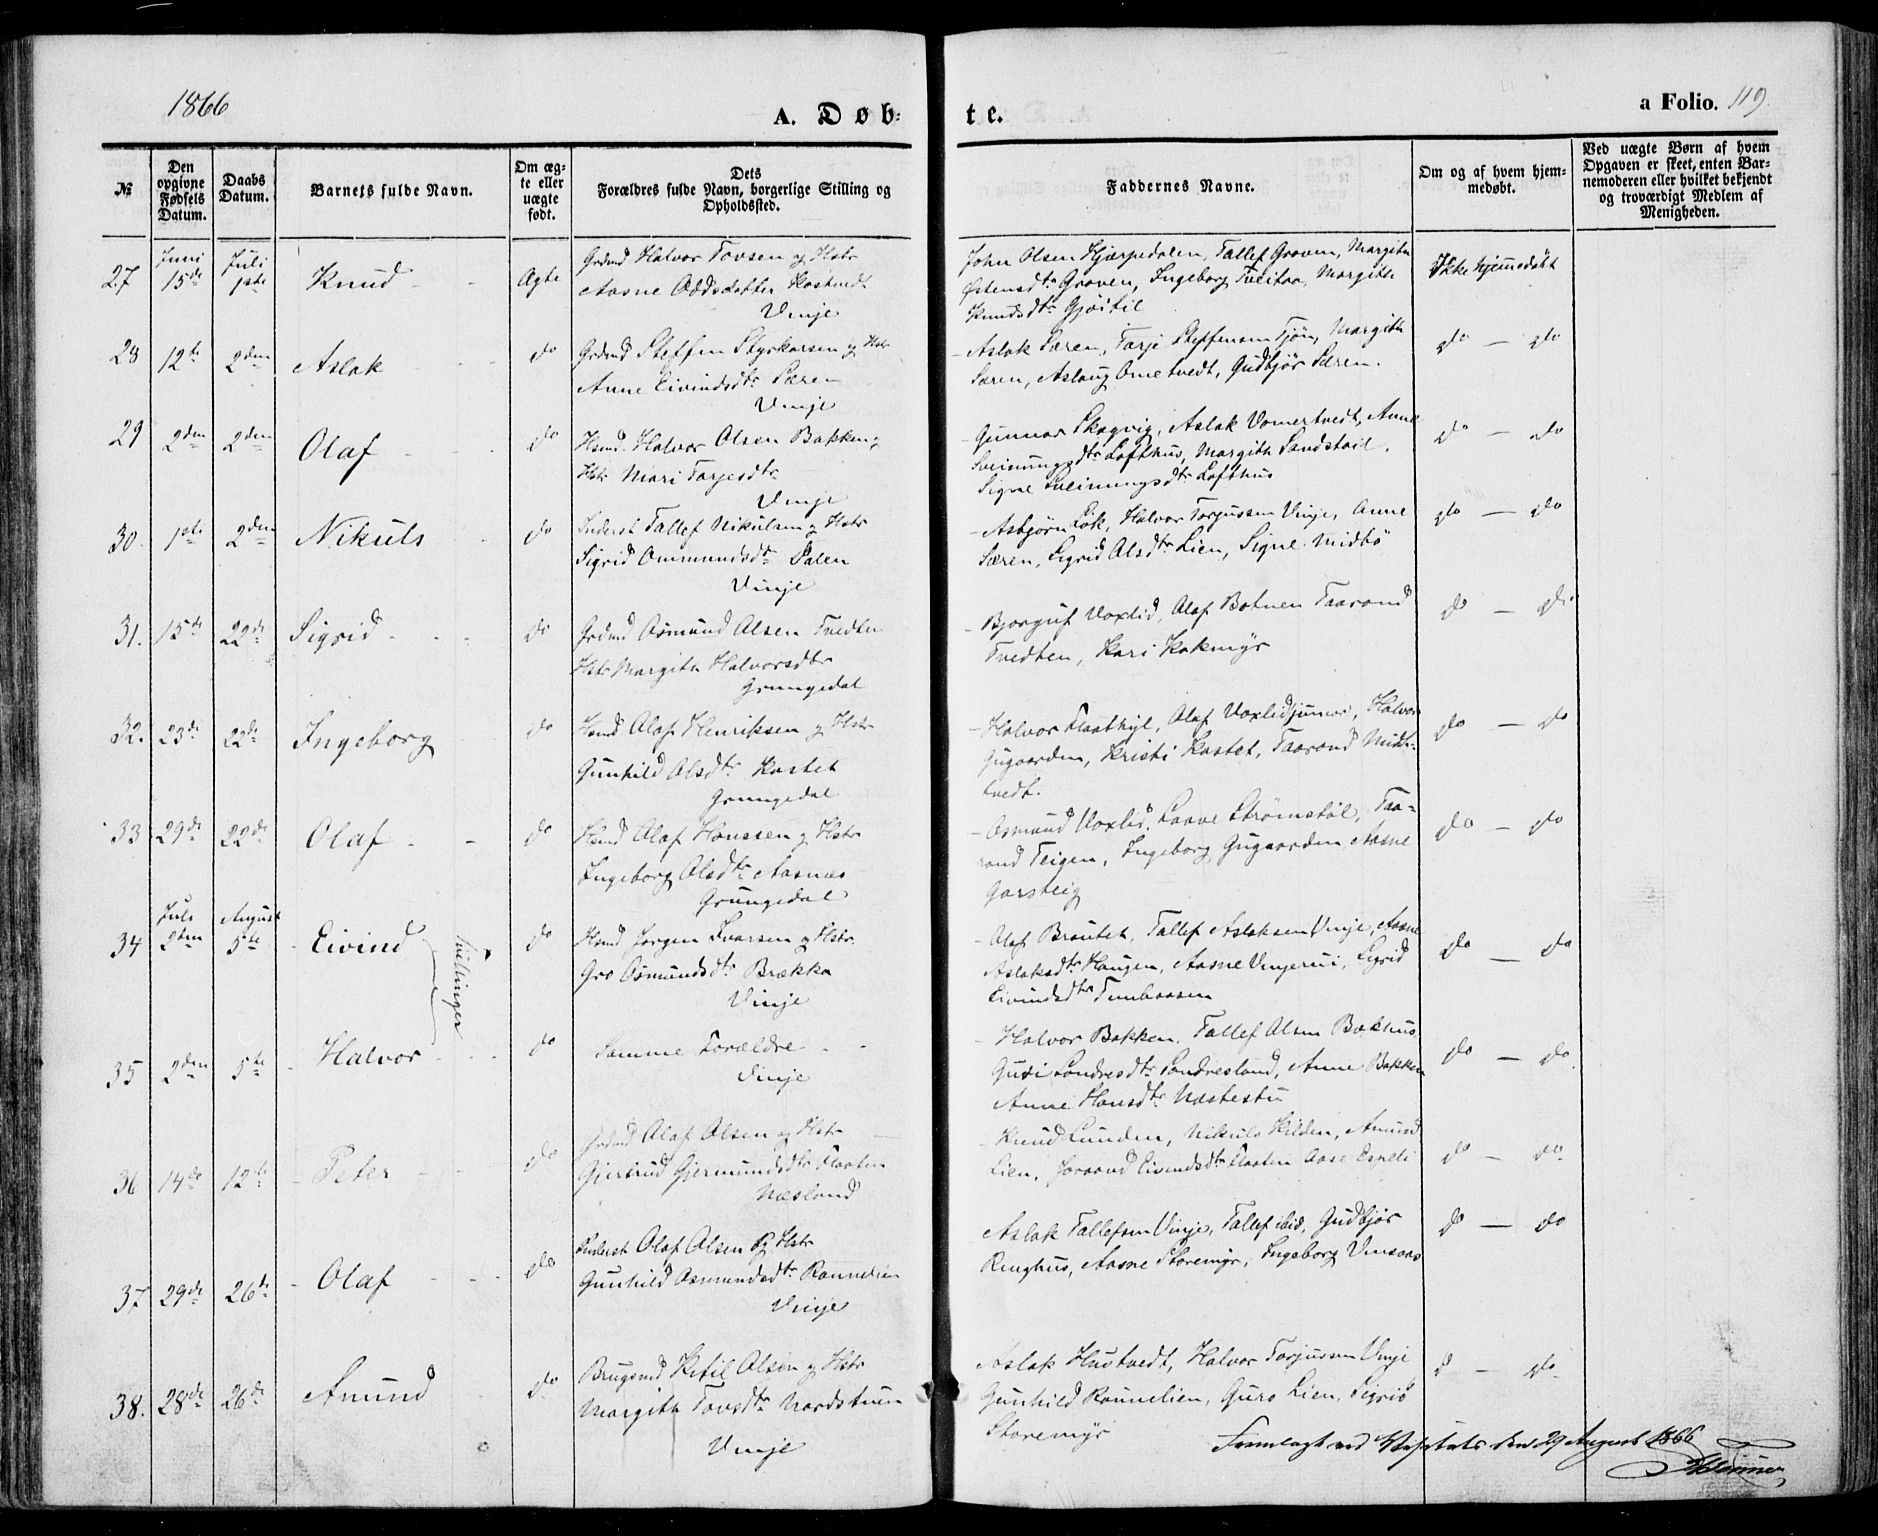 1866
A. Døb-
te.
a Folio. 119.
№
Den opgivne Fødsels Datum.
Daabs Datum.
Barnets fulde Navn.
Om ægte eller uægte født.
Dets Forældres fulde Navn, borgerlige Stilling og Opholdssted.
Faddernes Navne.
Om og af hvem hjemmedøbt.
Ved uægte Børn af hvem Opgaven er skeet, enten Barnemoderen eller hvilket bekjendt og troværdigt Medlem af Menigheden.
Juni Juli
27 15de 1ste Knud Ægte
Grdmd Halvor Tovsen og Hstr
Aasne Oddsdatter
Vinje
John Olsen Kjærpedalen, Tallef Groven, Margith
Østensdtr Groven, Ingeborg Tveitaa, Margith
Knudsdtr Gjøitil
Ikke hjemmedøbt
28 12te 2den Aslak do
Grdmd Steffen Styrkorsen og Hstr
Anne Eivindsdtr Særen
Vinje
Aslak Særen, Tarje Steffensen Tjøn, Margith
Særen, Aslaug Ometvedt, Gudbjør Særen.
do — do
29 2den 2den Olaf do
Hsmd. Halvor Olsen Bakken og
Hstr Mari Tarjesdtr
Vinje
Gunnar Skogvig, Aslak Vomertvedt, Anne
Sveinungsdtr Lofthus, Margith Sandstøil,
Signe Sveinungsdtr Lofthus
do — do
30. 1ste 2den Nikuls do
Inderst Tallef Nikulsen og Hstr
Sigrid Ommundsdtr Dalen
Vinje
Asbjørn Løk, Halvor Torjussen Vinje, Anne
Særen, Sigrid Olsdtr Lien, Signe Midbø
do — do
31. 15de 22de Sigrid do
Grdmd Osmund Olsen Tvedten
Hstr Margith Halvorsdtr
Grungedal
Bjorguf Voxlid, Olaf Botnen Taarand
Tvedten, Kari Kokmyr
do — do
32. 23de 22de Ingeborg do
Hsmd Olaf Henriksen og Hstr
Gunhild Olsdtr Kostet
Grungedal
Halvor Flaathyl, Olaf Voxlid junior, Halvor
Gugaarden, Kristi Kostet, Taarand Midt-
tvedt.
do — do
33 29de 22de Olaf do
Hsmd Olaf Hanssen og Hstr
Ingeborg Olsdtr Aasnæs
Grungedal
Osmund Voxlid, Laave Strømstøl, Taa-
rand Teigen, Ingeborg Gugaarden, Aasne
Garsteig
do — do
Juli August
34 2den 5te Eivind do
Tvillinger
Hsmd Jørgen Ivarsen og Hstr
Gro Osmundsdtr Brækka
Vinje
Olaf Brautet, Tallef Aslaksen Vinje, Aasne
Aslaksdtr Haugen, Aasne Vinjerui, Sigrid
Eivindsdtr
do — do
35 2den 5te Halvor do
Samme Forældre
Vinje
Halvor Bakken, Tallef Olsen Bækhus
Guri Sondresdtr Sondresland, Anne Bakken
Anne Hansdtr Næstestu
do — do
36 14de 12te Peter do
Grdmd Olaf Olsen og Hstr
Gjertrud Gjermundsdtr Flaaten
Næsland
Knud Lunden, Nikuls Kilden, Amund
Lien, Joraand Eivindsdtr Flaaten Aase Espeli
do — do
37 29de 26de Olaf do
Inderst Olaf Olsen og Hstr
Gunhild Osmundsdtr Rannelien
Vinje
Aslak Tallefsen Vinje, Tallef ibid, Gudbjør
Ringhus, Aasne Storemyr, Ingeborg Vinsaas
do — do
38. 28de 26de Amund do
Brugsmd Ketil Olsen og Hstr
Margith Tovsdtr Nordstuen
Vinje
Aslak Hustvedt, Halvor Torjussen Vinje
Gunhild Rannelien, Guro Lien, Sigrid
Storemyr
do — do
Fremlagt ved Visitats den 29 August 1866